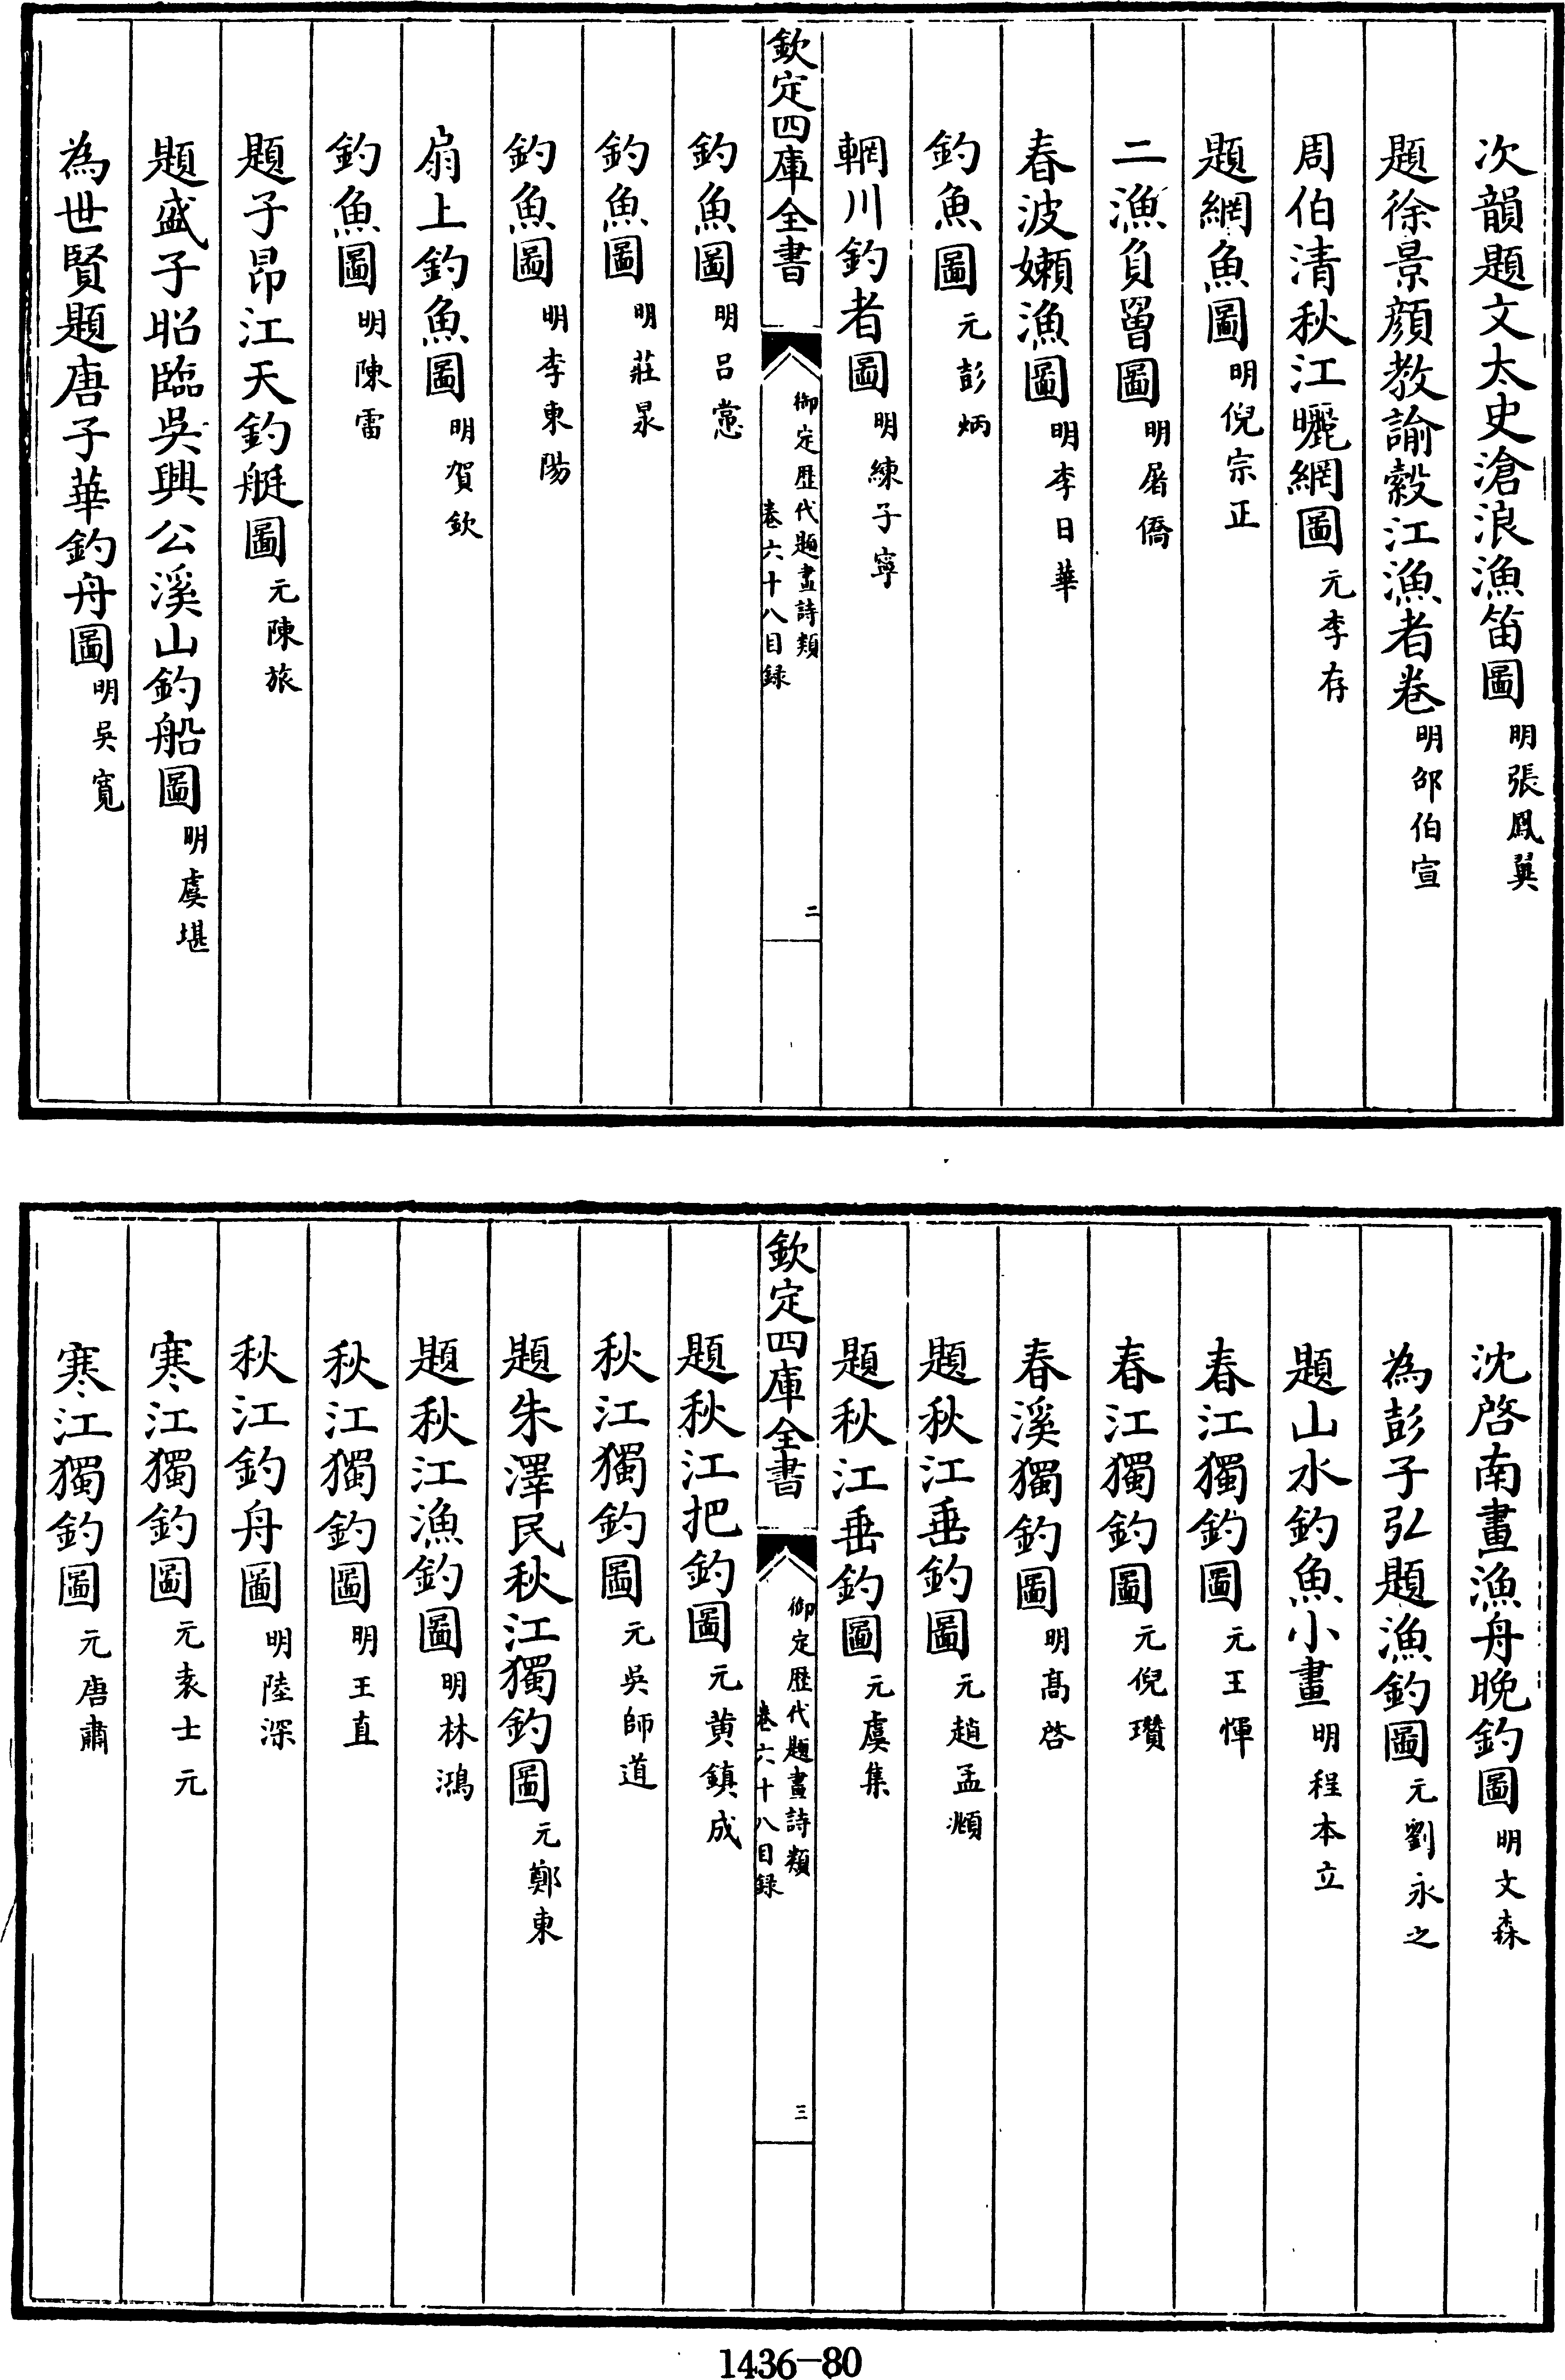 次韻題文太史滄浪漁笛圖明張鳳翼
題徐景顔教諭縠江漁者卷明邵伯宣
周伯清秋江曬網圖元李存
題網魚圖明倪宗正
二漁負罾圖明屠僑
春波嬾漁圖明李日華
釣魚圖元彭炳
輞川釣者圖明練子寧
欽定四庫全書
御定歴代題畫詩類
卷六十八目録
二
釣魚圖明吕㦂
釣魚圖明莊㫤
釣魚圖明李東陽
扇上釣魚圖明賀欽
釣魚圖明陳雷
題子昂江天釣艇圖元陳旅
題盛子昭臨吳興公溪山釣船圖明虞堪
為世賢題唐子華釣舟圖明吳寬
沈啓南畫漁舟晚釣圖明文森
為彭子弘題漁釣圖元劉永之
題山水釣魚小畫明程本立
春江獨釣圖元王惲
春江獨釣圖元倪瓚
春溪獨釣圖明髙啓
題秋江垂釣圖元趙孟頫
題秋江垂釣圖元虞集
欽定四庫全書
御定歴代題畫詩類
卷六十八目録
三
題秋江把釣圖元黄鎮成
秋江獨釣圖元吳師道
題朱澤民秋江獨釣圖元鄭東
題秋江漁釣圖明林鴻
秋江獨釣圖明王直
秋江釣舟圖明陸深
寒江獨釣圖元袁士元
寒江獨釣圖元唐肅
1436-80